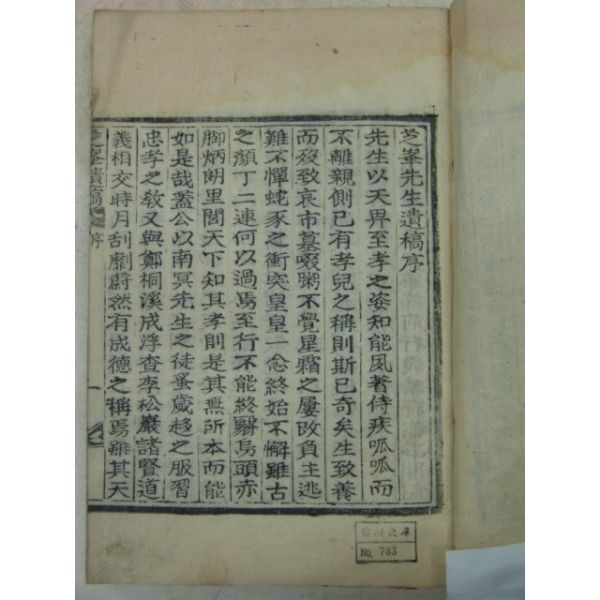 芝峯先生遺稿序
先生以天畀至孝之姿知能夙著侍疾呱呱而
不離親側已有孝兒之稱則斯已奇矣生致養
而歿致哀市墓啜粥不覺星霜之屢改負主逃
難不憚蛇豕之衝突皇皇一念終始不懈雖古
之顔丁二連何以過焉至行不能終翳烏頭赤
脚炳朗里閭天下知其孝則是其無所本而能
如是哉蓋公以南冥先生之徒蚤歲趍之服習
忠孝之敎又與鄭桐溪成浮查李松巖諸賢道
義相交時月刮劘蔚然有成德之稱焉雖其天
芝峯遺稿
序
一
No. 783